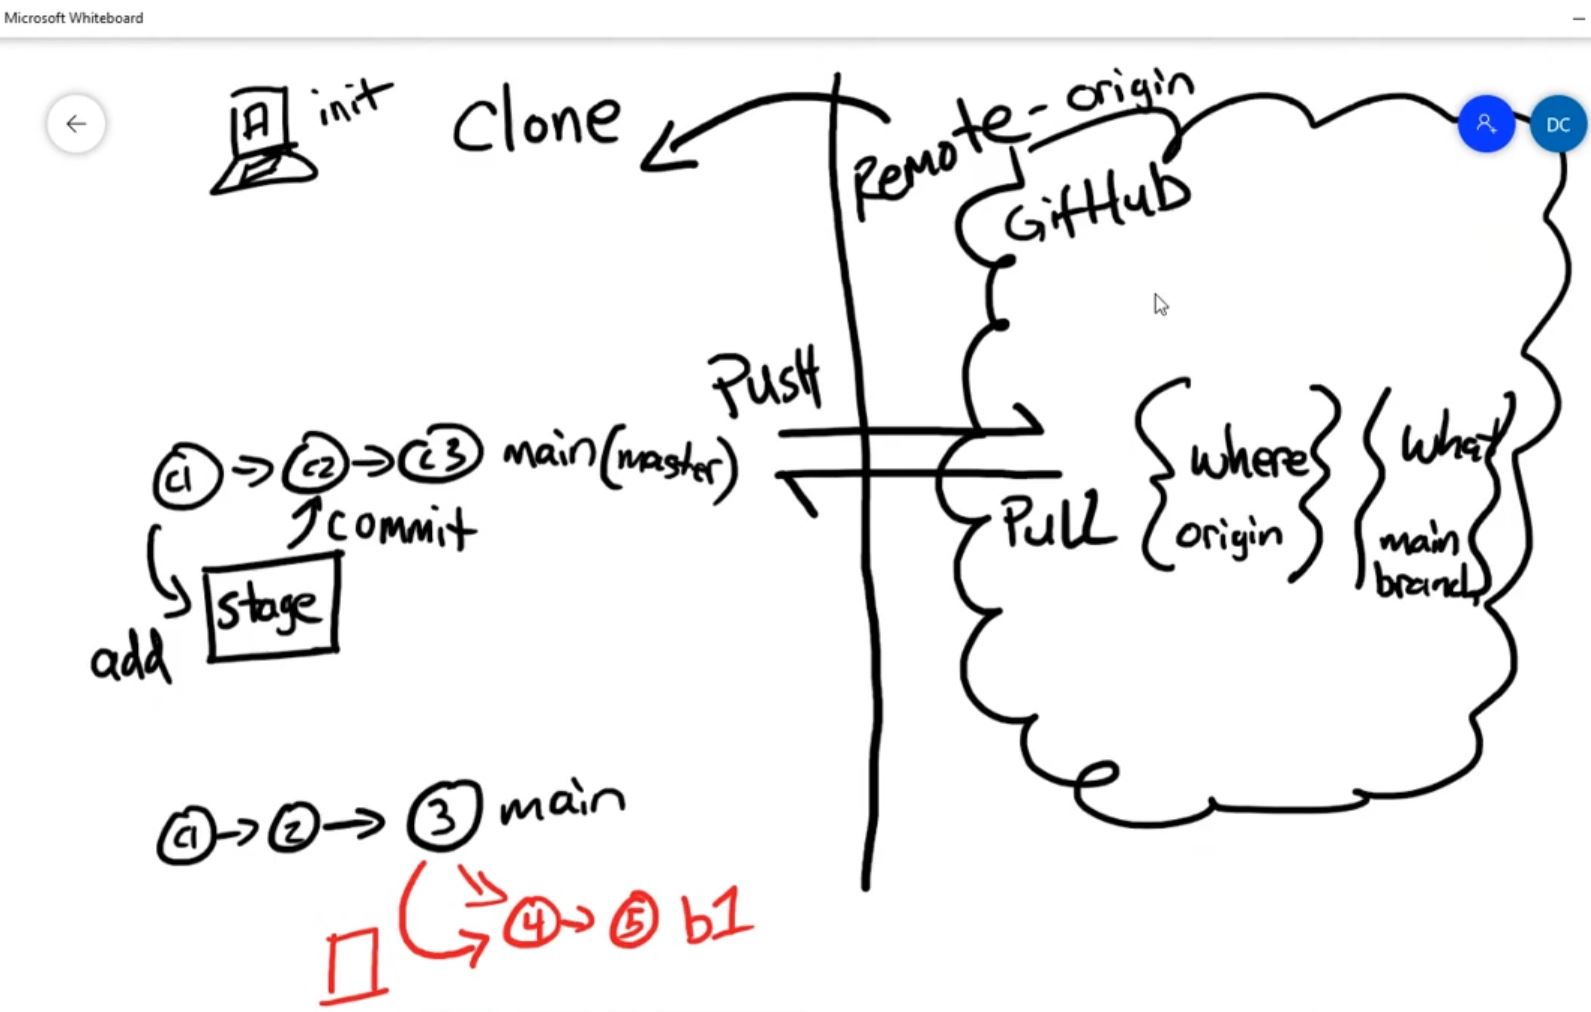 Microsoft Whiteboard
A init
Clone
Remote - origin
GitHub
DC
PUSH
C1 C2 C3 main (master)
commit
stage
add
PULL
where
origin
what
main
branch
C1 2 3 main
4 5 b1